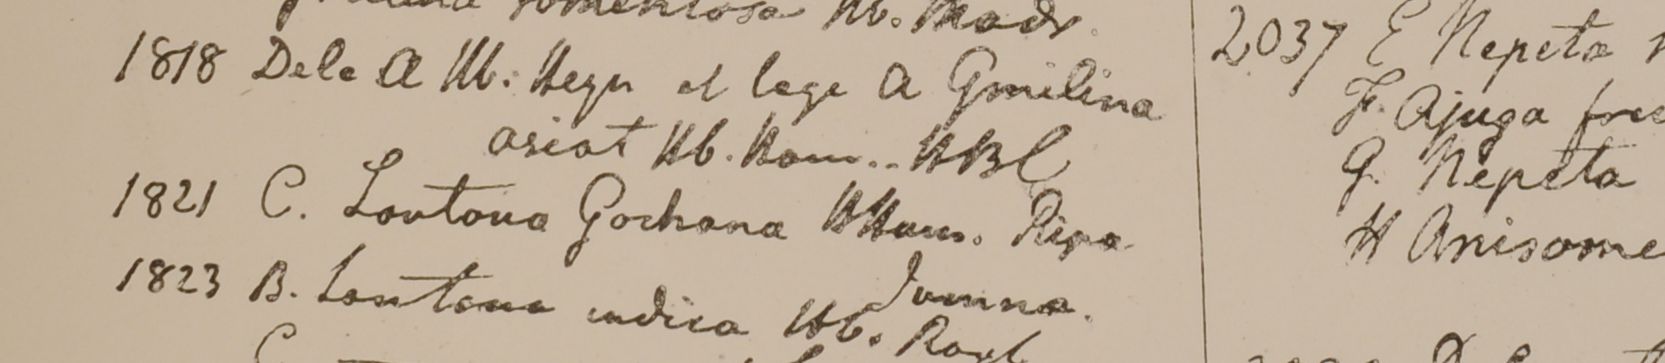 tomentosa Hb. Madr.
1818 Dele A Hb. Heyn et lege A Gmilina
asiat Hb. Ham.. HBC
1821 C. Lantana Gochana HHam. Ripa
Jumna.
1823 B. Lantana indica Hb. Roxb
2037 E Nepeta
F. Ajuga
G. Nepeta
H Anisome